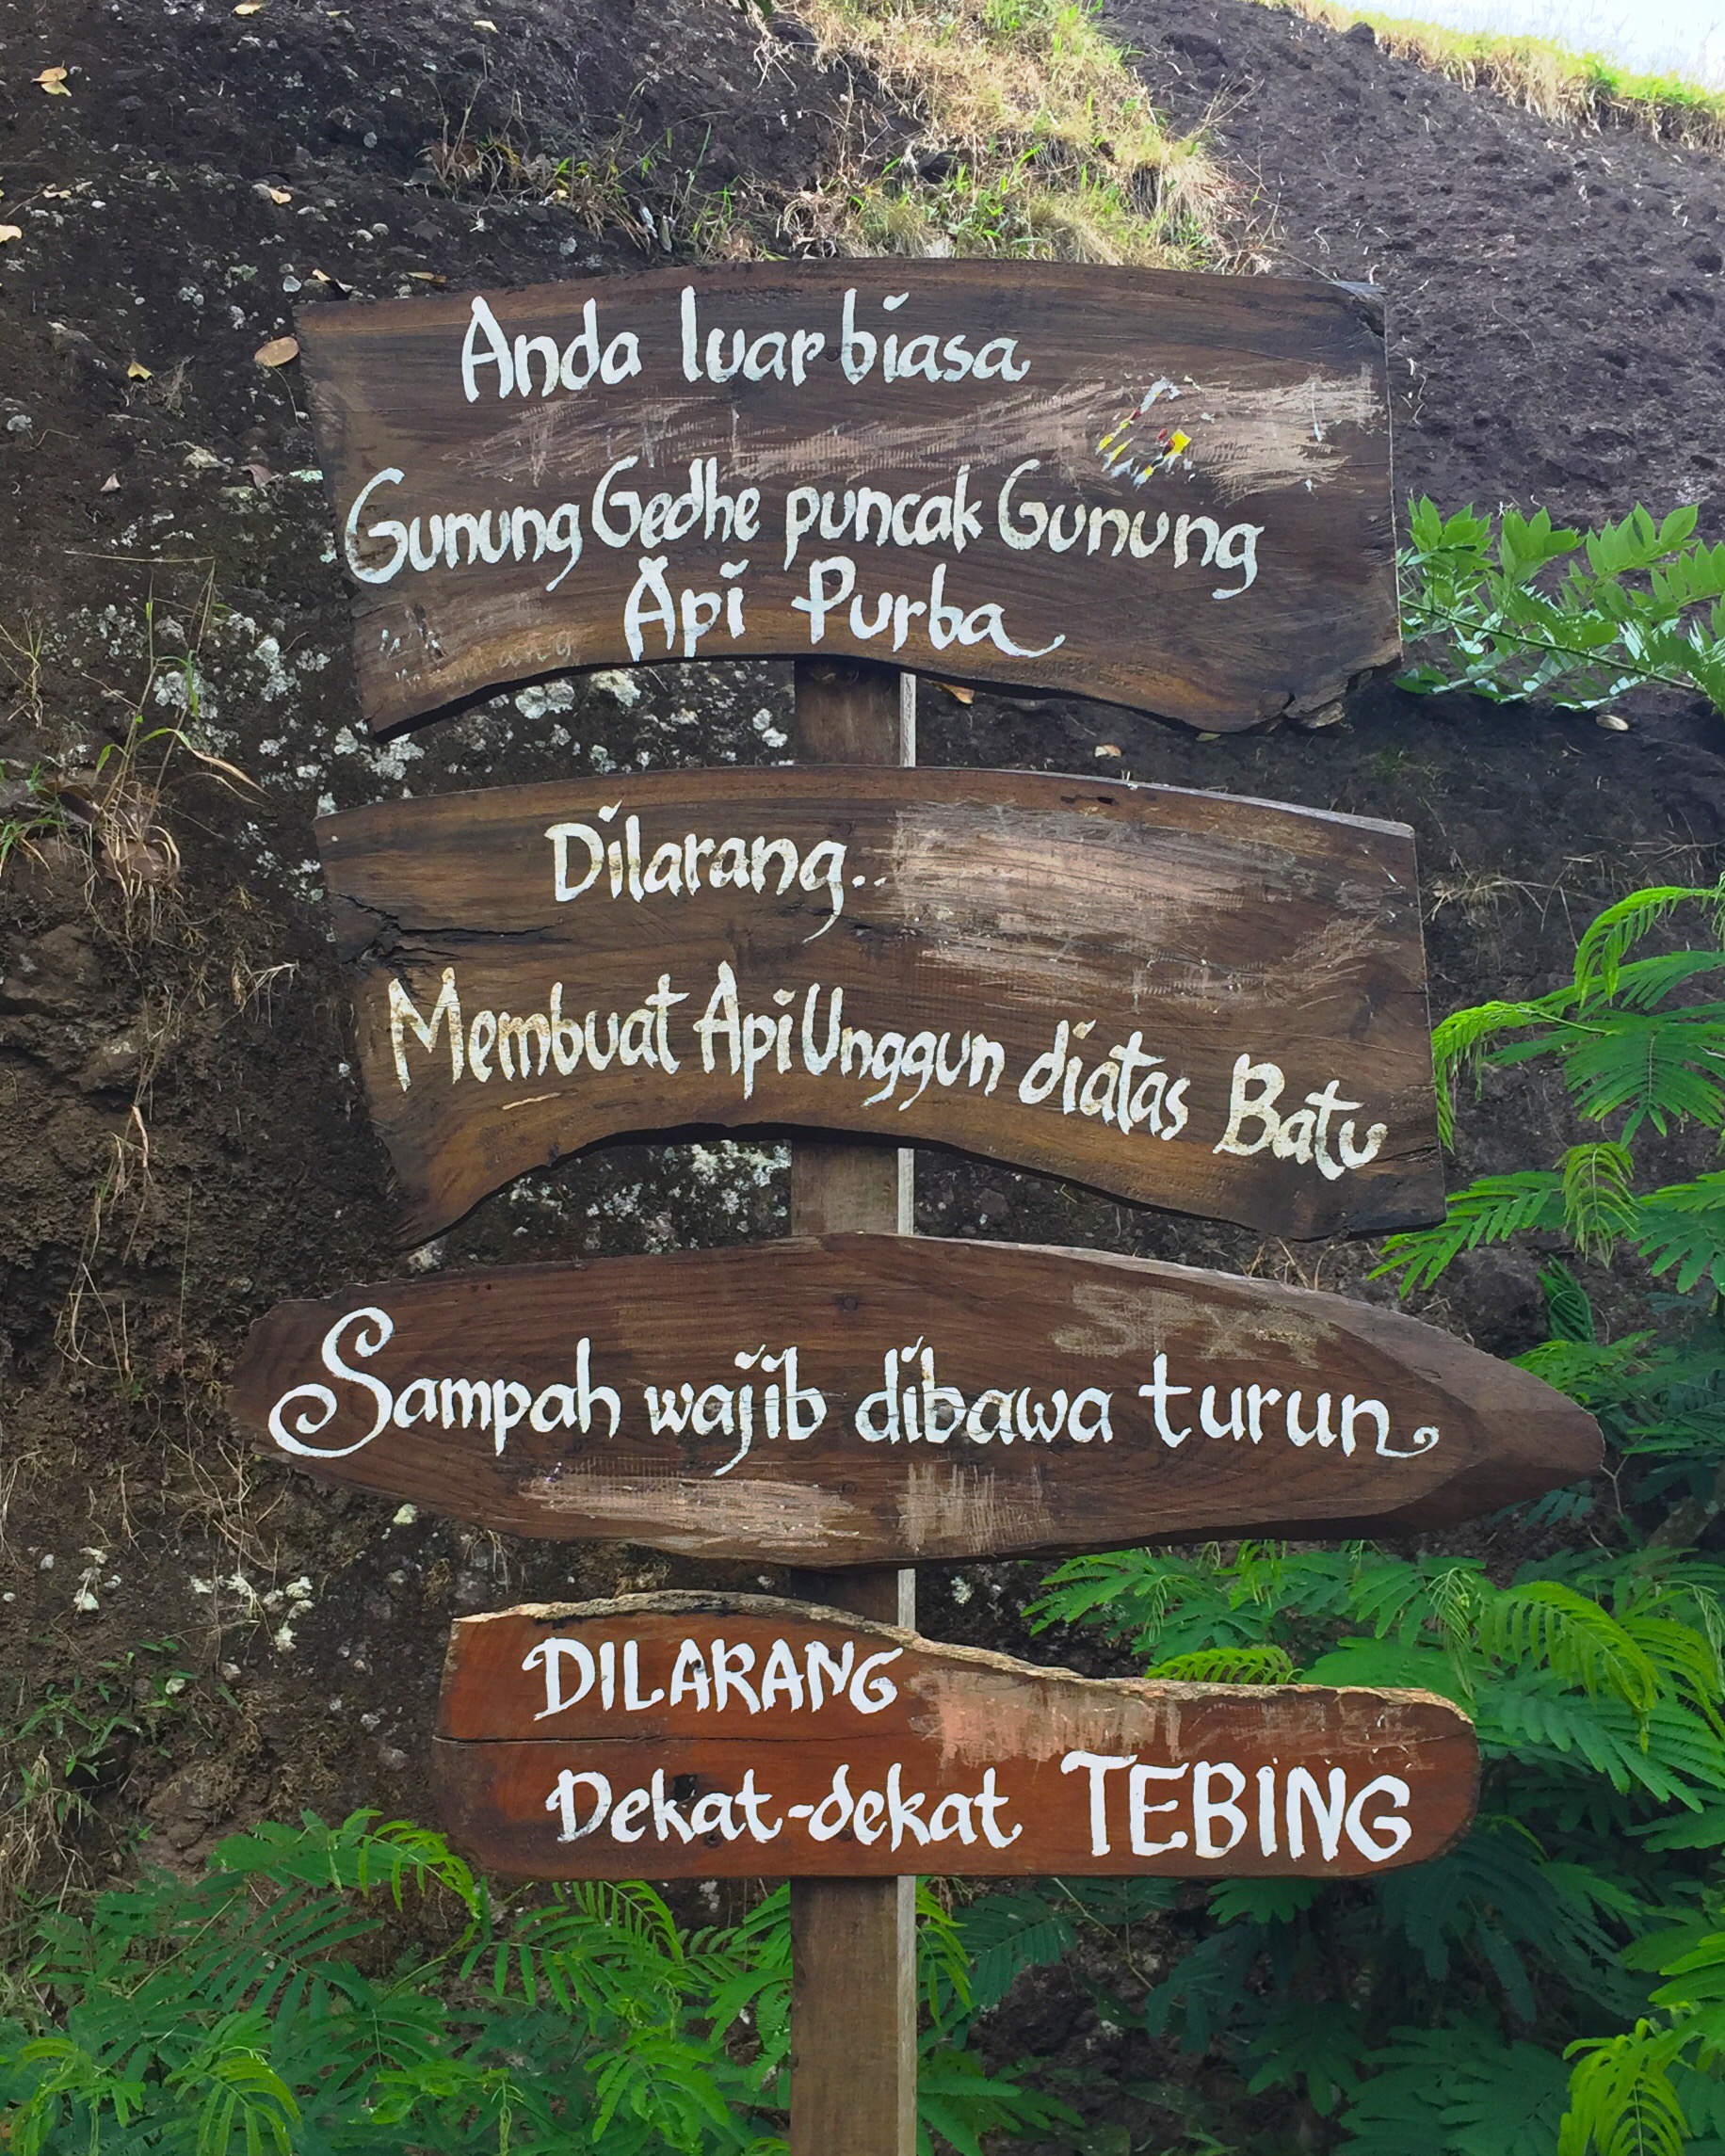 Anda luar biasa
Gunung Gedhe puncak Gunung
Api Purba
Dilarang..
Membuat Api Unggun diatas Batu
Sampah wajib dibawa turun
DILARANG
Dekat-dekat TEBING